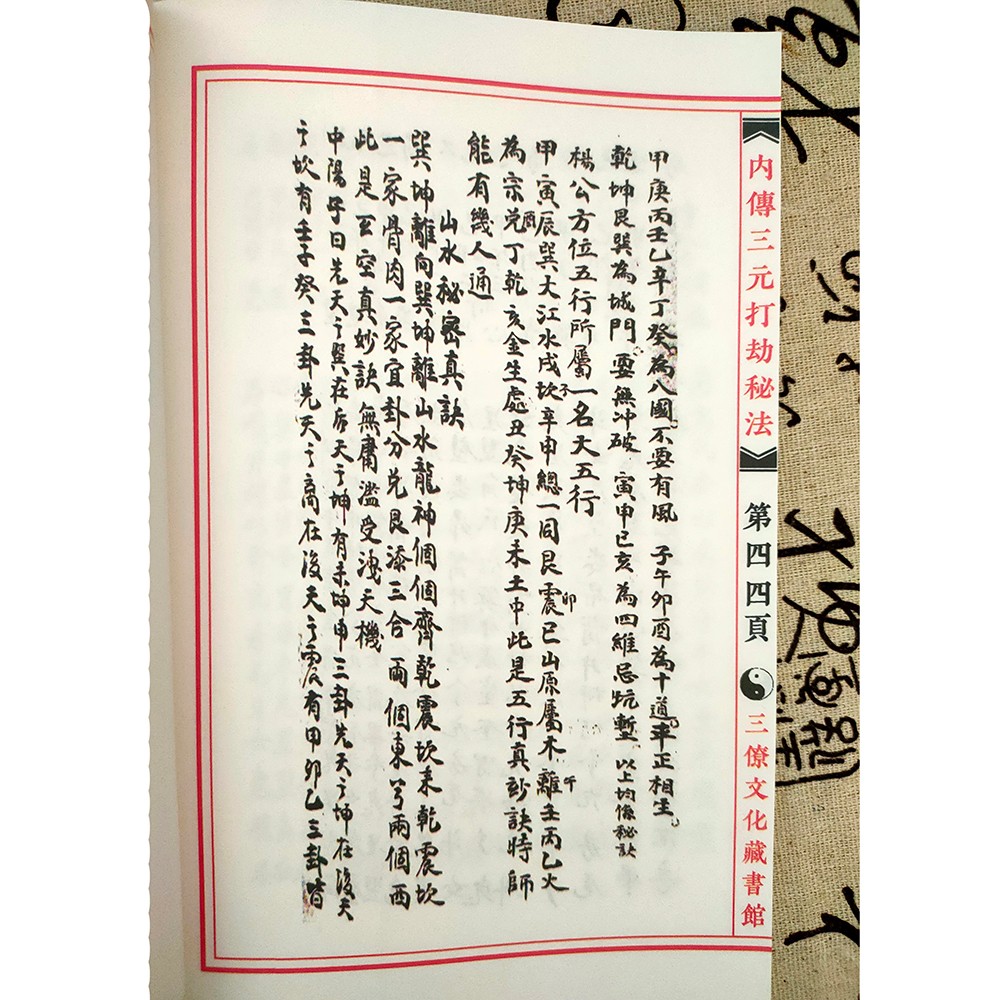 內傳三元打劫秘法
第四四頁
三僚文化藏書館
甲庚丙壬乙辛丁癸為八國不要有風 子午卯酉為十道平正相生
乾坤艮巽為城門要無冲破 寅申巳亥為四維忌坑塹 以上均係秘訣
楊公方位五行所屬一名大五行
甲寅辰巽大江水戌坎子辛申總一同艮震卯巳山原屬木離午壬丙乙火
為宗兌酉丁乾亥金生處丑癸坤庚未土中此是五行真妙訣時師
能有幾人通
山水秘密真訣
巽坤離向巽坤離山水龍神個個齊乾震坎來乾震坎
一家骨肉一家宜卦分兌艮添三合兩個東兮兩個西
此是玄空真妙訣無庸濫受洩天機
中陽子曰先天之巽在后天之坤有未坤申三卦先天之坤在後天
之坎有壬子癸三卦先天之离在後天之震有甲卯乙三卦皆